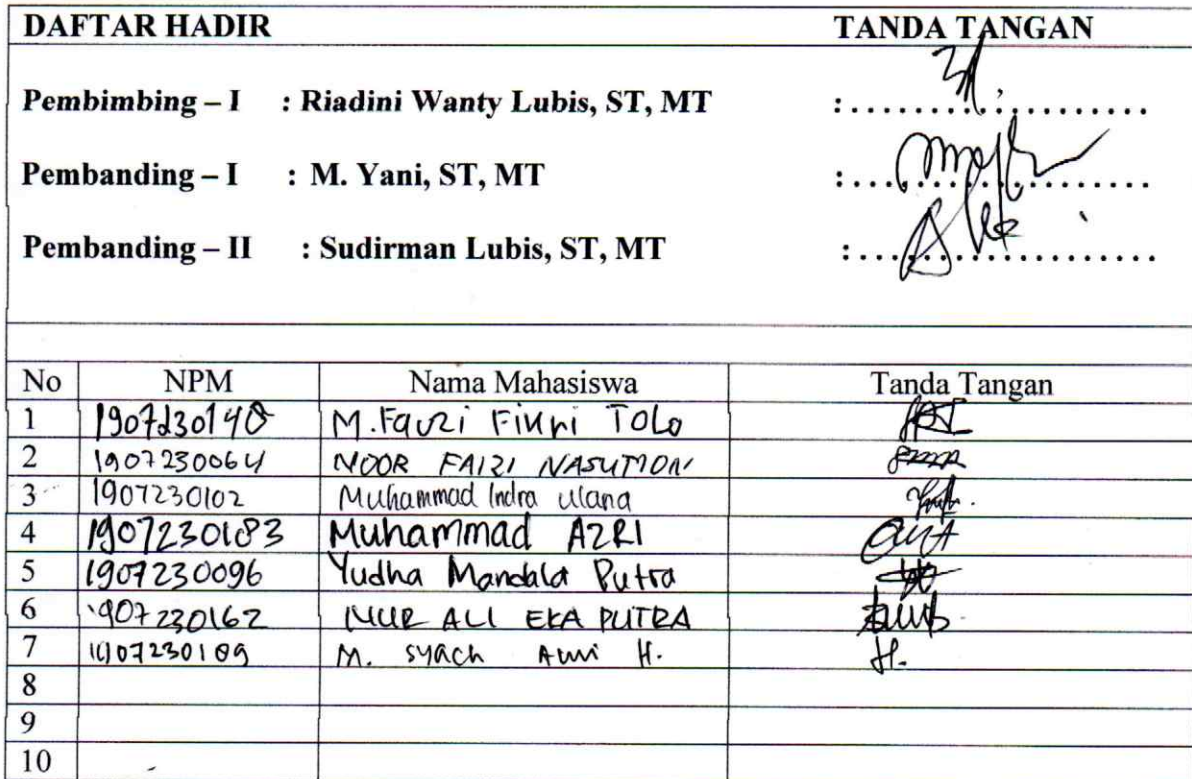 DAFTAR HADIR TANDA TANGAN
Pembimbing – I : Riadini Wanty Lubis, ST, MT : ....................
Pembanding – I : M. Yani, ST, MT : ....................
Pembanding – II : Sudirman Lubis, ST, MT : ....................
No NPM Nama Mahasiswa Tanda Tangan
1 1907230140 M. Fauzi Fikri TOLO
2 1907230064 NOOR FAIZI NASUTION
3 1907230102 Muhammad Indra ulana
4 1907230183 Muhammad AZRI
5 1907230096 Yudha Mandala Putra
6 1907230162 NUR ALI EKA PUTRA
7 1907230189 M. syach Awi H.
8
9
10